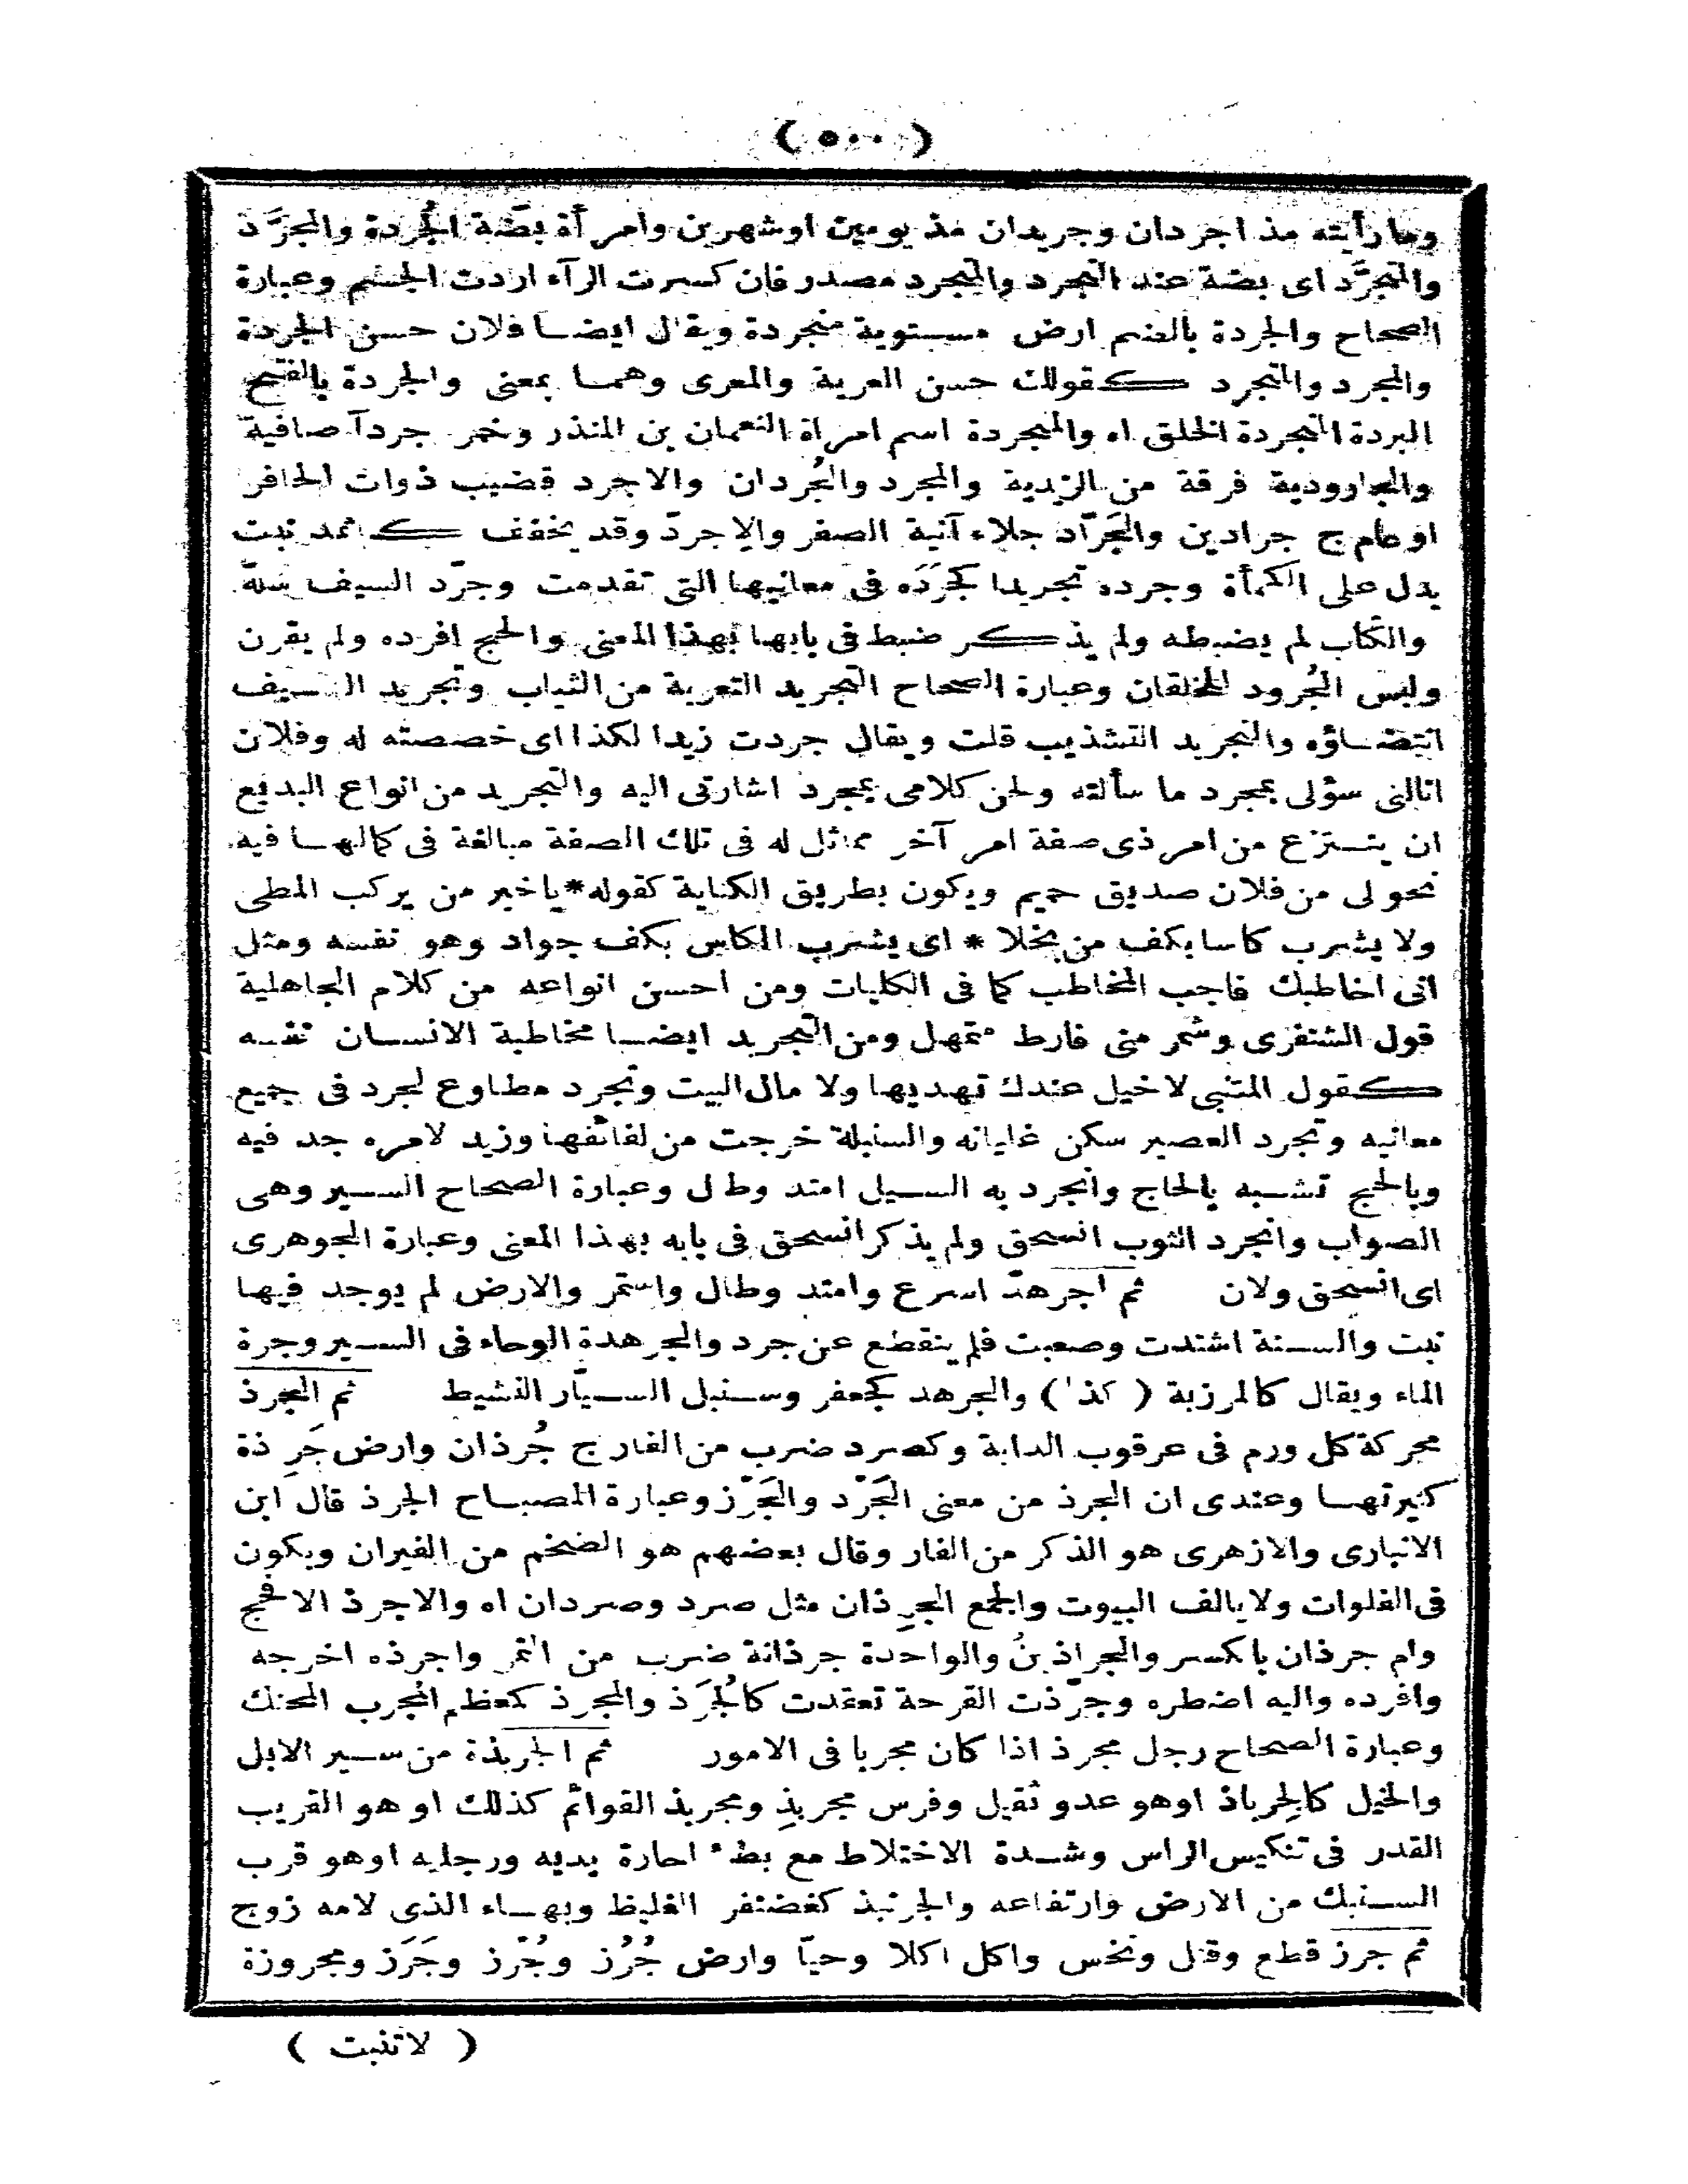 ( ٥٠٠ )
وما رأيته مذ اجردان وجريدان مذ يومين اوشهرين وامرأة بضّة الجُردة والمجرَّد
والمتجرَّد اى بضة عند التجرد والمتجرد مصدر فان كسرت الرآء اردت الجسم وعبارة
الصحاح والجردة بالضم ارض مستوية منجردة ويقال ايضا فلان حسن الجردة
والمجرد والتجرد كقولك حسن العرية والمعرى وهما بمعنى والجردة بالفتح
البردة المنجردة الخلق اه والمتجردة اسم امراة النعمان بن المنذر وخمر جردآ صافية
والجارودية فرقة من الزيدية والمجرد والجُردان والاجرد قضيب ذوات الحافر
اوعام ج جرادين والجَرّاد جلاء آنية الصفر والاجردّ وقد يخفف كاثمد نبت
يدل على الكمأة وجرده تجريدا كجَرَدَه فى معانيها التى تقدمت وجرّد السيف سلّه
والكتاب لم يضبطه ولم يذكر ضبط فى بابها بهذا المعنى والحج افرده ولم يقرن
ولبس الجُرود للخلقان وعبارة الصحاح التجريد التعرية من الثياب وتجريد السيف
انتضاؤه والتجريد التشذيب قلت ويقال جردت زيدا لكذا اى خصصته له وفلان
انالنى سؤلى بمجرد ما سألته ولحن كلامى بمجرد اشارتى اليه والتجريد من انواع البديع
ان ينتزع من امر ذى صفة امر آخر مماثل له فى تلك الصفة مبالغة فى كمالها فيه
نحو لى من فلان صديق حميم ويكون بطريق الكناية كقوله * ياخير من يركب المطى
ولا يشرب كاسا بكف من بخلا * اى يشرب الكاس بكف جواد وهو نفسه ومثل
انى اخاطبك فاجب المخاطب كما فى الكليات ومن احسن انواعه من كلام الجاهلية
قول الشنفرى وشمر منى فارط متمهل ومن التجريد ايضا مخاطبة الانسان نفسه
كقول المتنبى لاخيل عندك تهديها ولا مال البيت وتجرد مطاوع لجرد فى جميع
معانيه وتجرد العصير سكن غليانه والسنبلة خرجت من لفائفها وزيد لامره جد فيه
وبالحج تشبه بالحاج وانجرد به السيل امتد وطال وعبارة الصحاح السير وهى
الصواب وانجرد الثوب انسحق ولم يذكر انسحق فى بابه بهذا المعنى وعبارة الجوهرى
اى انسحق ولان ثم اجرهدّ اسرع وامتد وطال واستمر والارض لم يوجد فيها
نبت والسنة اشتدت وصعبت فلم ينقطع عن جرد والجرهدة الوحاء فى السير وجرة
الماء ويقال كالمرزبة ( كذا ) والجرهد كجعفر وسنبل السيّار النشيط ثم الجرذ
محركة كل ورم فى عرقوب الدابة وكصرد ضرب من الفار ج جُرذان وارض جَرِذة
كثيرتها وعندى ان الجرذ من معنى الجَرْد والجَرْز وعبارة المصباح الجرذ قال ابن
الانبارى والازهرى هو الذكر من الفار وقال بعضهم هو الضخم من الفيران ويكون
فى الفلوات ولا يالف البيوت والجمع الجِرذان مثل صرد وصردان اه والاجرذ الافحج
وام جرذان بالكسر والجراذين والواحدة جرذانة ضرب من التمر واجرذه اخرجه
وافرده واليه اضطره وجرّذت القرحة تعقدت كالجُرَذ والمجرذ كمعظم المجرب المحنك
وعبارة الصحاح رجل مجرذ اذا كان مجربا فى الامور ثم الجربذة من سير الابل
والخيل كالجِرباذ اوهو عدو ثقيل وفرس مجربذِ ومجربذ القوائم كذلك او هو القريب
القدر فى تنكيس الراس وشدة الاختلاط مع بطء احارة يديه ورجليه اوهو قرب
السنبك من الارض وارتفاعه والجرنبذ كغضنفر الغليظ وبهاء الذى لامه زوج
ثم جرز قطع وقتل ونخس واكل اكلا وحيّا وارض جُرُز وجُرْز وجَرَز ومجروزة
( لاتنبت )